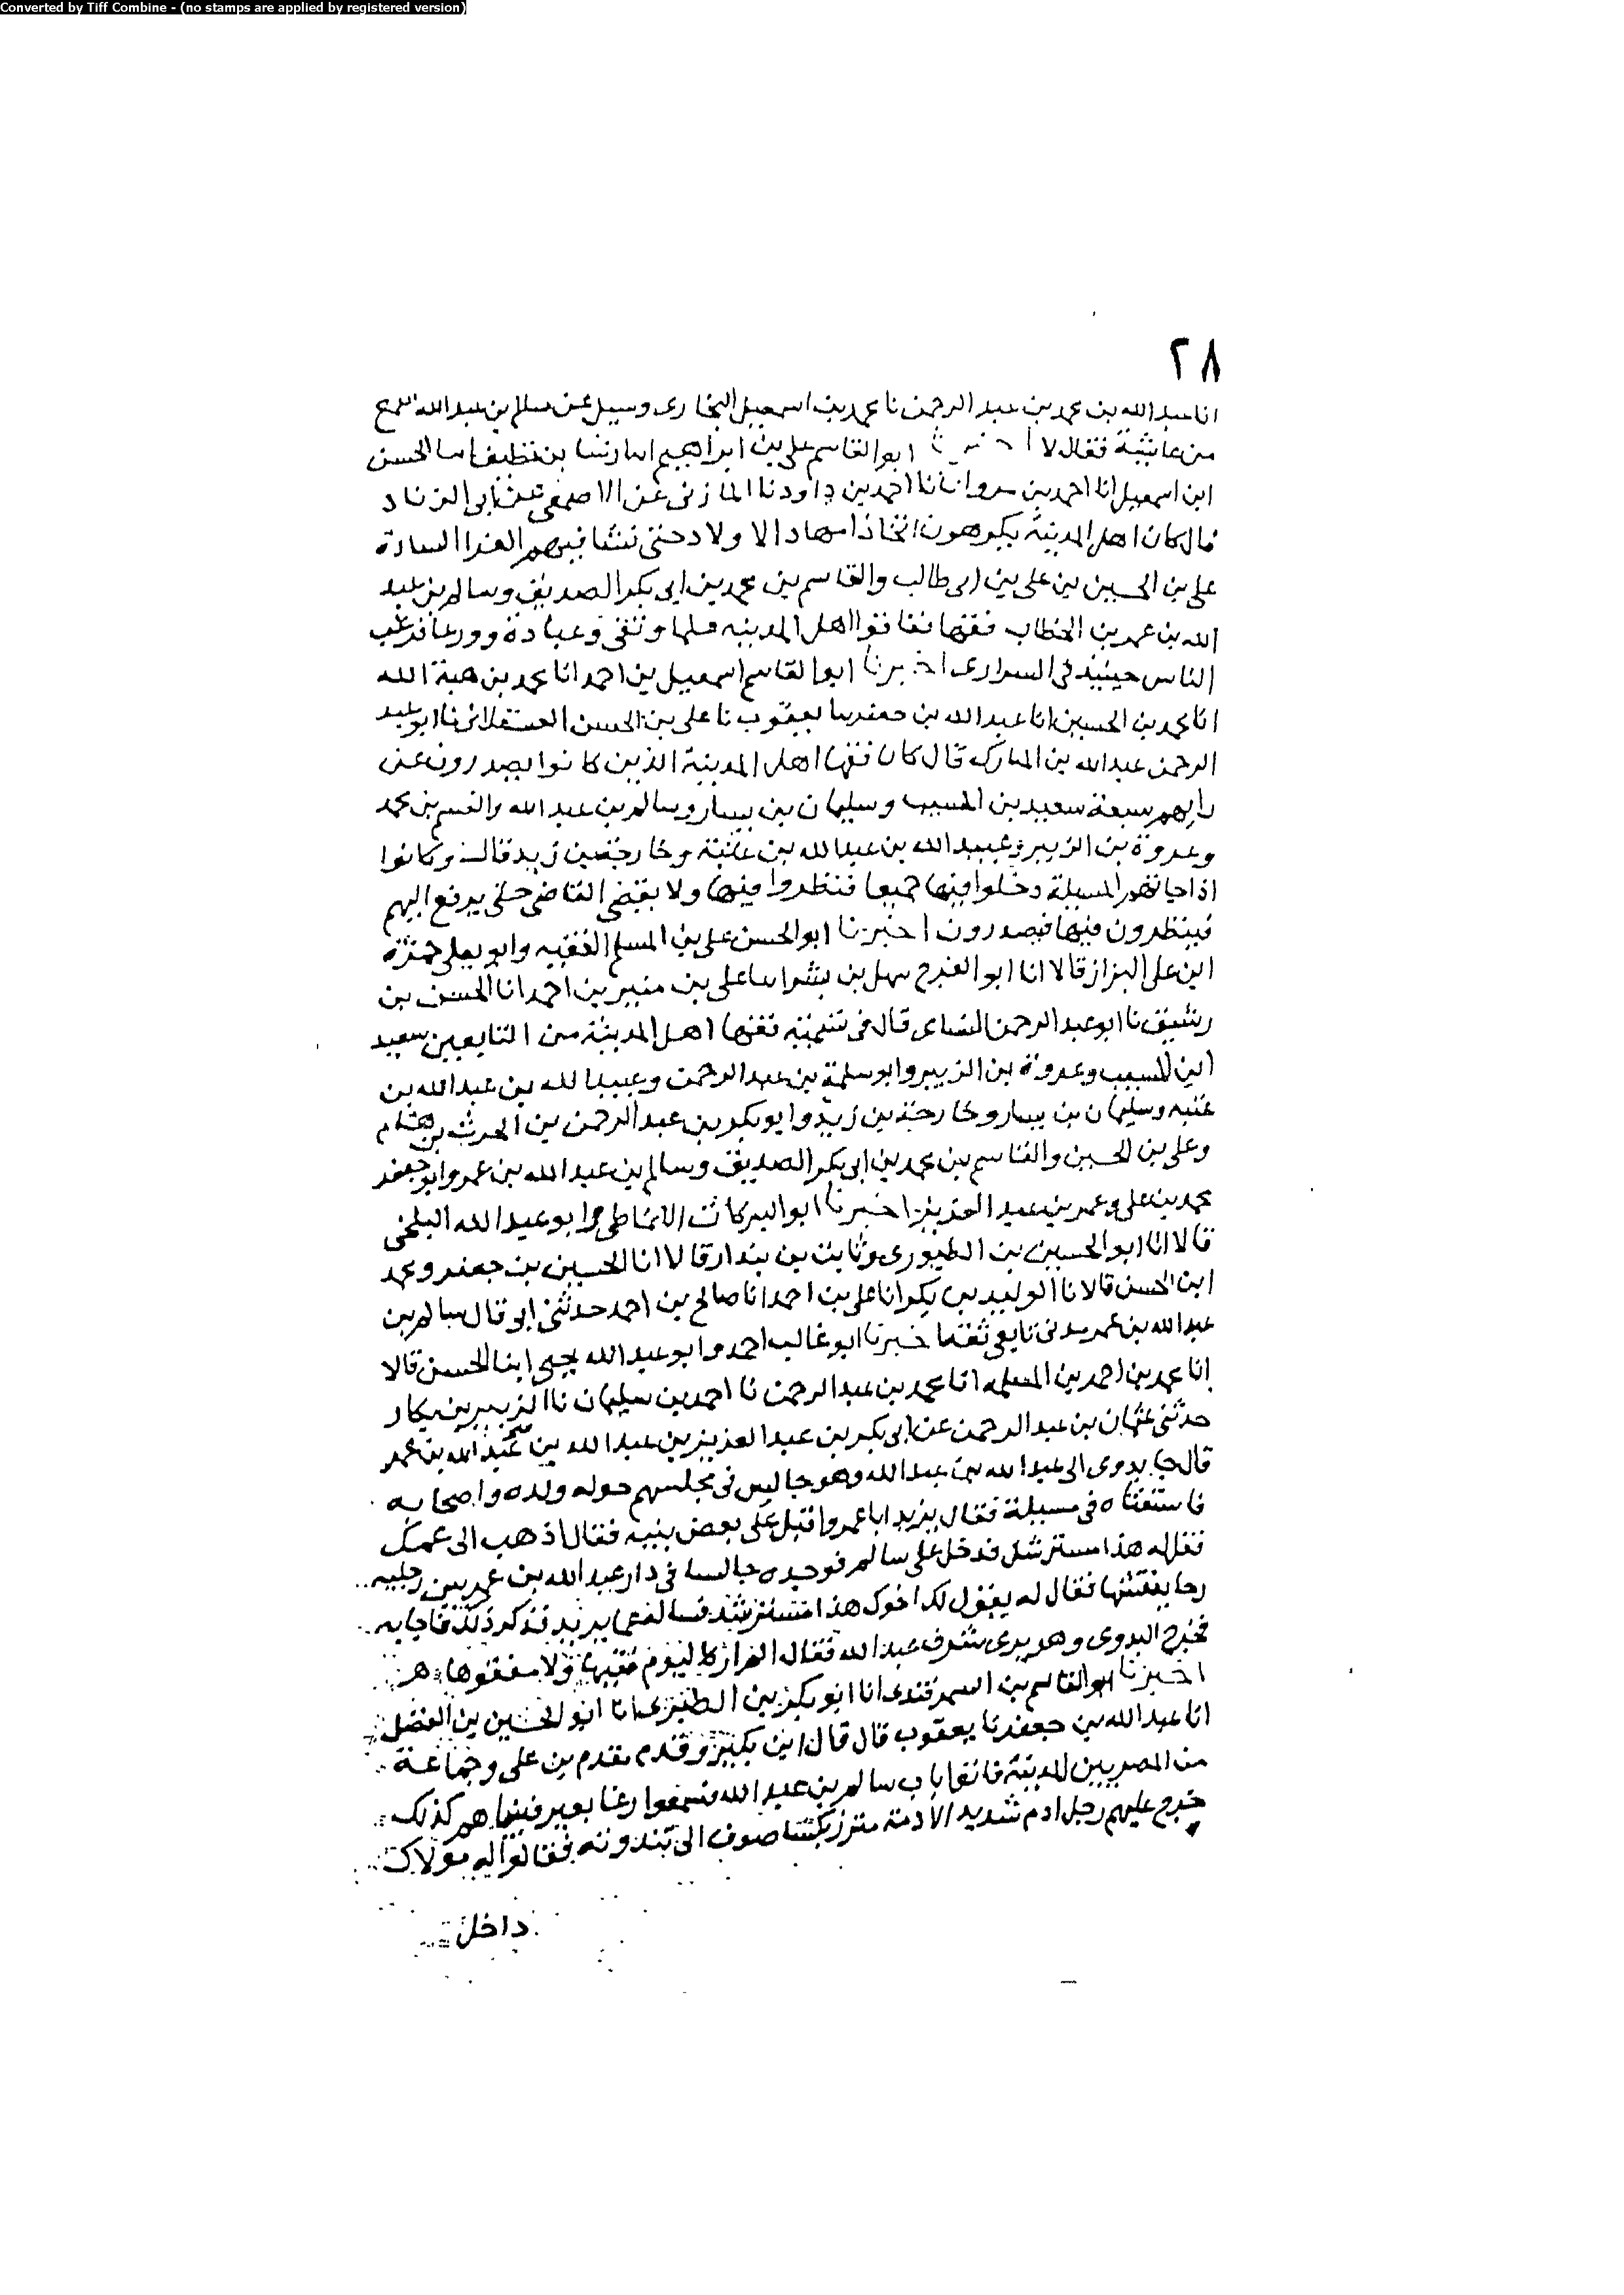 Converted by Tiff Combine - (no stamps are applied by registered version)
٢٨
انا عبد الله بن محمد بن عبد الرحمن نا محمد بن اسمعيل البخارى وسيل عن سلم بن عبد الله سمع
من عايشة فقال لا اخبرنا ابو القاسم على بن ابراهيم انا رشا بن نظيف انا الحسن
ابن اسمعيل انا احمد بن مروان نا احمد بن داود نا المازنى عن الاصمعى عن ابى الزناد
قال كان اهل المدينة يكرهون اتخاذ امهاد الاولاد حتى نشا فيهم الغرا السادة
على بن الحسين بن على بن ابى طالب والقاسم بن محمد بن ابى بكر الصديق وسالم بن عبد
الله بن عمر بن الخطاب فقها ففاقوا اهل المدينه علما وتقى وعبادة وورعا فرغب
الناس حينيذ فى السرارى اخبرنا ابو القاسم اسمعيل بن احمد انا محمد بن هبة الله
انا محمد بن الحسين انا عبد الله بن جعفر نا يعقوب نا على بن الحسن العسقلانى نا ابو عبد
الرحمن عبد الله بن المبارك قال كان فقها اهل المدينة الذين كانوا يصدرون عن
رايهم سبعة سعيد بن المسيب وسليمان بن يسار وسالم بن عبد الله والقسم بن محمد
وعروة بن الزبير وعبيد الله بن عبد الله بن عتبة وخارجة بن زيد قال وكانوا
اذا جاتهم المسيلة دخلوا فيها جميعا فنظروا فيها ولا يقضى القاضى حتى يرفع اليهم
فينظرون فيها فيصدرون اخبرنا ابو الحسن على بن المسلم الفقيه وابو يعلى حمزة
ابن على البزاز قالا انا ابو الفرج سهل بن بشر انا على بن منير بن احمد انا الحسن بن
رشيق نا ابو عبد الرحمن النساى قال فى تسمية فقها اهل المدينة من التابعين سعيد
ابن المسيب وعروة بن الزبير وابو سلمة بن عبد الرحمن وعبيد الله بن عبد الله بن
عتبه وسليمان بن يسار وخارجة بن زيد وابو بكر بن عبد الرحمن بن الحرث بن هشام
وعلى بن الحسين والقاسم بن محمد بن ابى بكر الصديق وسالم بن عبد الله بن عمر وابو جعفر
محمد بن على وعمر بن عبد العزيز اخبرنا ابو البركات الانماطى وابو عبد الله البلخى
قالا انا ابو الحسين بن الطيورى وثابت بن بندار قالا انا الحسين بن جعفر ومحمد
ابن الحسن قالا نا الوليد بن بكر انا على بن احمد انا صالح بن احمد حدثنى ابى قال سالم بن
عبد الله بن عمر مدنى تابعى ثقة اخبرنا ابو غالب احمد وابو عبد الله يحيى ابنا الحسن قالا
انا محمد بن احمد بن المسلمه انا محمد بن عبد الرحمن نا احمد بن سليمان نا الزبير بن بكار
حدثنى عثمان بن عبد الرحمن عن ابى بكر بن عبد العزيز بن عبد الله بن عبد الله بن عمر
قال جا بدوى الى عبد الله بن عبد الله وهو جالس فى مجلسهم حوله ولده واصحابه
فاستفتاه فى مسيلة فقال يزيد ابا عمر واقبل على بعض بنيه فقال اذهب الى عمك
فقل له هذا مسترشد فدخل على سالم فوجده جالسا فى دار عبد الله بن عمر بين رجليه
رحا يفتتها فقال له يقول لك اخوك هذا مسترشد فساله عما يريد فذكر ذلك فاجابه
فخرج البدوى وهو يرى شرف عبد الله فقال الم ار كاليوم فقيها ولا
اخبرنا ابو القاسم بن السمرقندى انا ابو بكر بن الطبرى انا ابو الحسين بن الفضل
انا عبد الله بن جعفر نا يعقوب قال قال ابن بكير وقدم مقدم بن على وجماعة
من المصريين المدينة فاتقا باب سالم بن عبد الله فسمعوا رغا بعير فبينما هم كذلك
خرج عليهم رجل ادم شديد الادمة متزر بكسا صوف الى تندوته فقالوا له مولاك
داخل